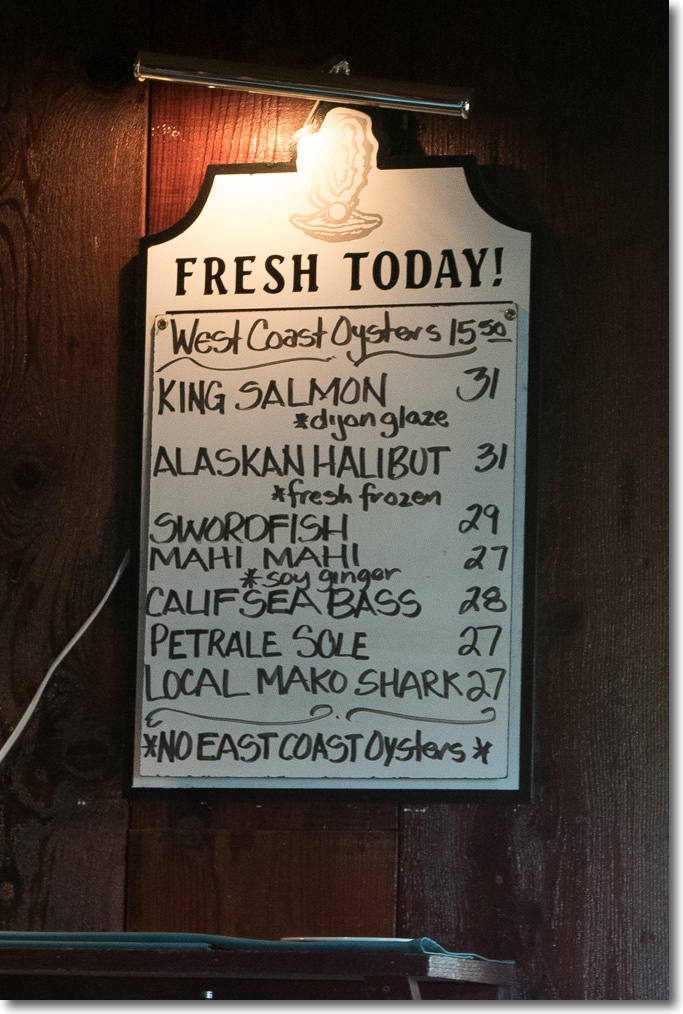 FRESH TODAY!
West Coast Oysters 15 50
KING SALMON 31
*dijon glaze
ALASKAN HALIBUT 31
*fresh frozen
SWORDFISH 29
MAHI MAHI 27
*soy ginger
CALIF SEA BASS 28
PETRALE SOLE 27
LOCAL MAKO SHARK 27
*NO EAST COAST Oysters*